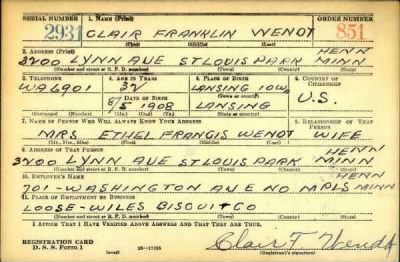 SERIAL NUMBER 1. NAME (Print) ORDER NUMBER
2931 CLAIR FRANKLIN WENDT 851
(First) (Middle) (Last)
2. ADDRESS (Print) HENN
3200 LYNN AVE ST LOUIS PARK MINN
(Number and street or R. F. D. number) (Town) (County) (State)
3. TELEPHONE 4. AGE IN YEARS 5. PLACE OF BIRTH 6. COUNTRY OF CITIZENSHIP
WA6901 32 LANSING IOWA
DATE OF BIRTH (Town or county) U.S.
8/5 1908 LANSING
(Mo.) (Day) (Yr.) (State or country)
7. NAME OF PERSON WHO WILL ALWAYS KNOW YOUR ADDRESS 8. RELATIONSHIP OF THAT PERSON
MRS ETHEL FRANCIS WENDT WIFE
(Mr., Mrs., Miss) (First) (Middle) (Last)
9. ADDRESS OF THAT PERSON HENN
3200 LYNN AVE ST LOUIS PARK MINN
(Number and street or R. F. D. number) (Town) (County) (State)
10. EMPLOYER'S NAME HENN
701-WASHINGTON AVE NO MPLS MINN
11. PLACE OF EMPLOYMENT OR BUSINESS
LOOSE-WILES BISQUIT CO
(Number and street or R. F. D. number) (Town) (County) (State)
I AFFIRM THAT I HAVE VERIFIED ABOVE ANSWERS AND THAT THEY ARE TRUE.
REGISTRATION CARD
D. S. S. FORM 1 16-17105 Clair F. Wendt
(Registrant's signature)